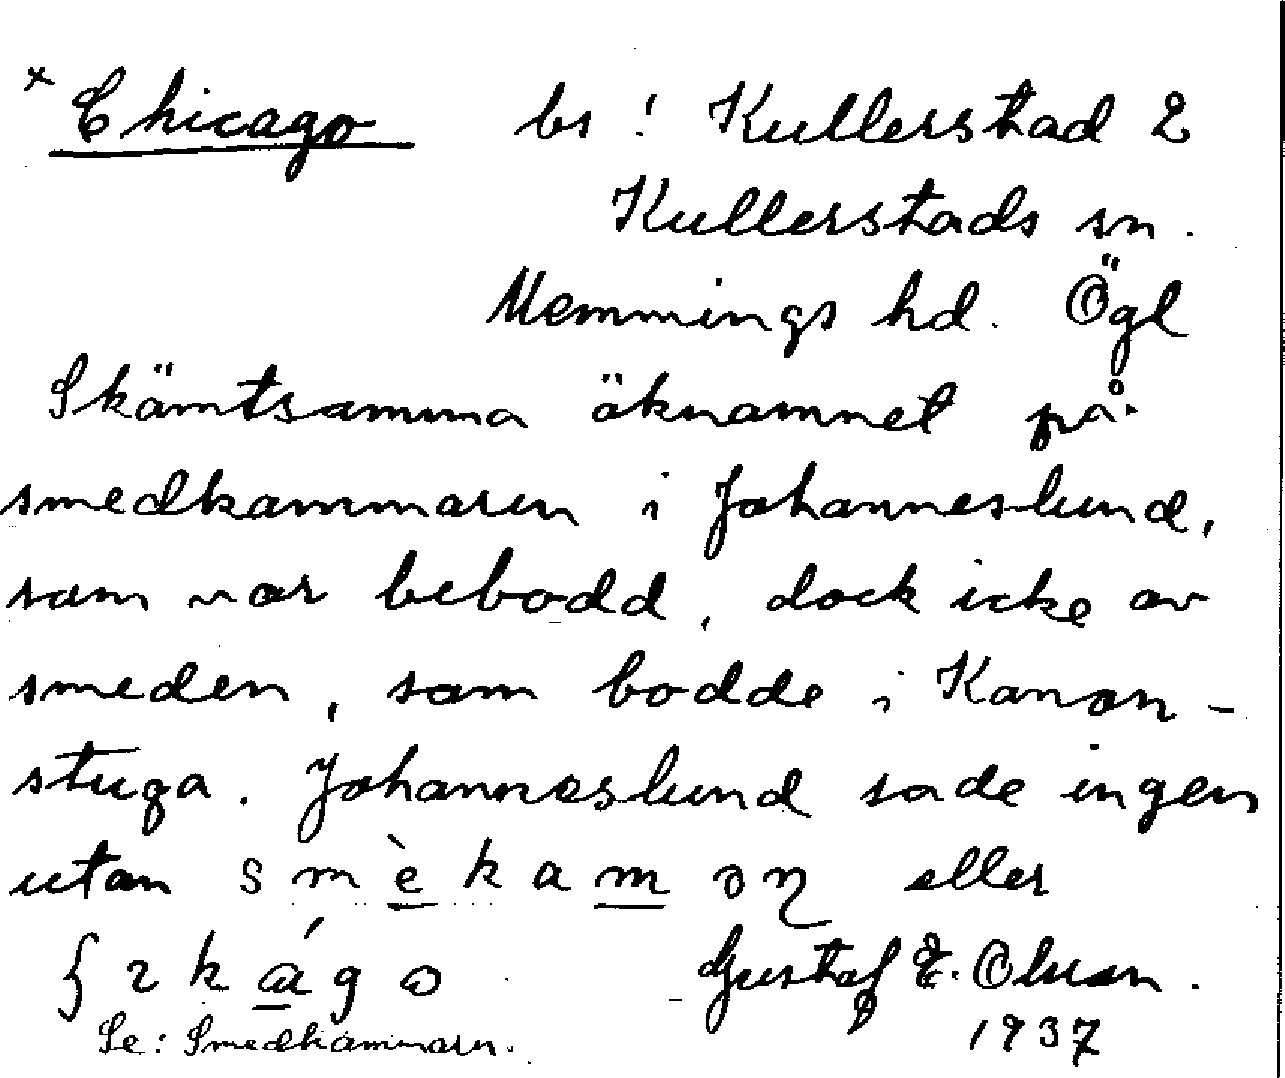 × Chicago bs! Kullerstad 2
Kullerstads sn.
Memmings hd. Ögl
Skämtsamma öknamnet på
smedkammaren i Johanneslund,
som var bebodd, dock icke av
smeden, som bodde i Kanon-
stuga. Johanneslund sade ingen
utan smèkaməŋ eller
Gustaf E. Olsson.
Se: Smedkammaren.
1937